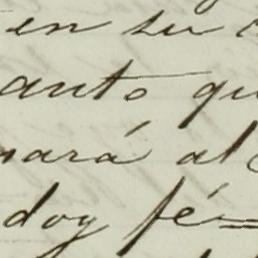 en su
anto qu
nará al
doy fé=